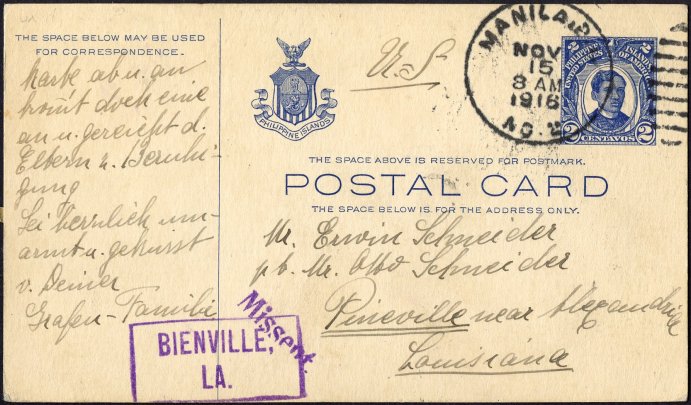 THE SPACE BELOW MAY BE USED
FOR CORRESPONDENCE.
Karte ab u. an
kommt doch eine
an u. gereicht d.
Eltern z. Beruhi-
gung
Sei herzlich um-
armt u. geküsst
v. Deiner
Grafen-Familie
PHILIPPINE ISLANDS
U-S
MANILA, P.
NOV
15
8 AM
1916
NO. 2
2 2
PHILIPPINE ISLANDS
UNITED STATES OF AMERICA
2 CENTAVOS 2
THE SPACE ABOVE IS RESERVED FOR POSTMARK.
POSTAL CARD
THE SPACE BELOW IS FOR THE ADDRESS ONLY.
Mr. Erwin Schneider
pb. Mr. Otto Schneider
Pineville near Alexandria
Louisiana
Missent.
BIENVILLE,
LA.